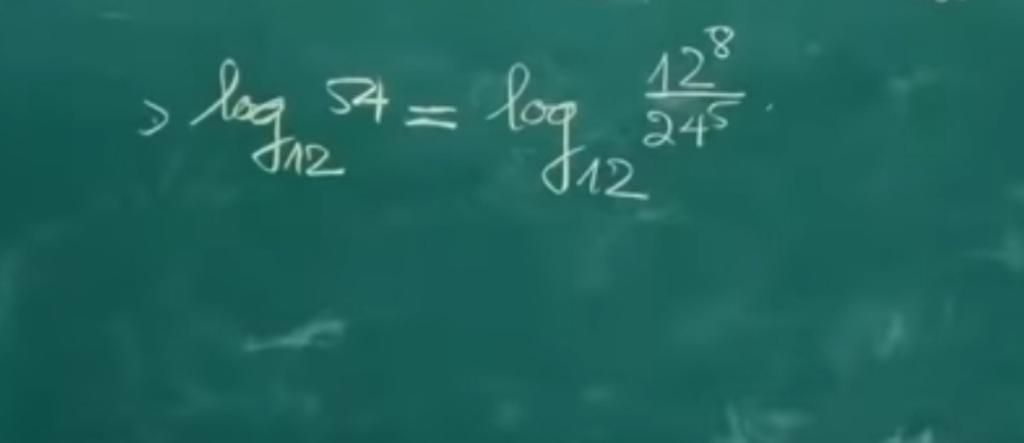 > log₁₂ 54 = log₁₂ 12⁸/24⁵.